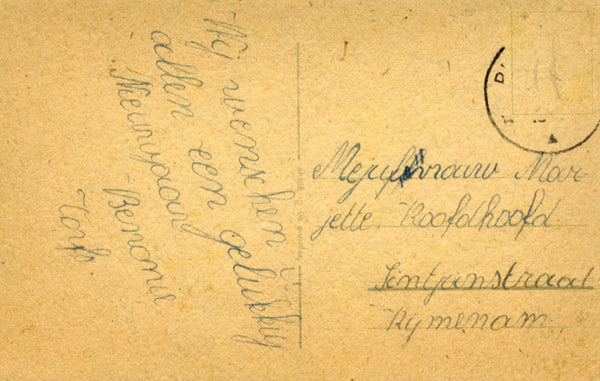 Wij wenschen U
allen een gelukkig
Nieuwjaar
-Benonie
Torfs
Mejufvrouw Mar-
jette Hoofdhoofd
Sintjanstraat
Rymenam